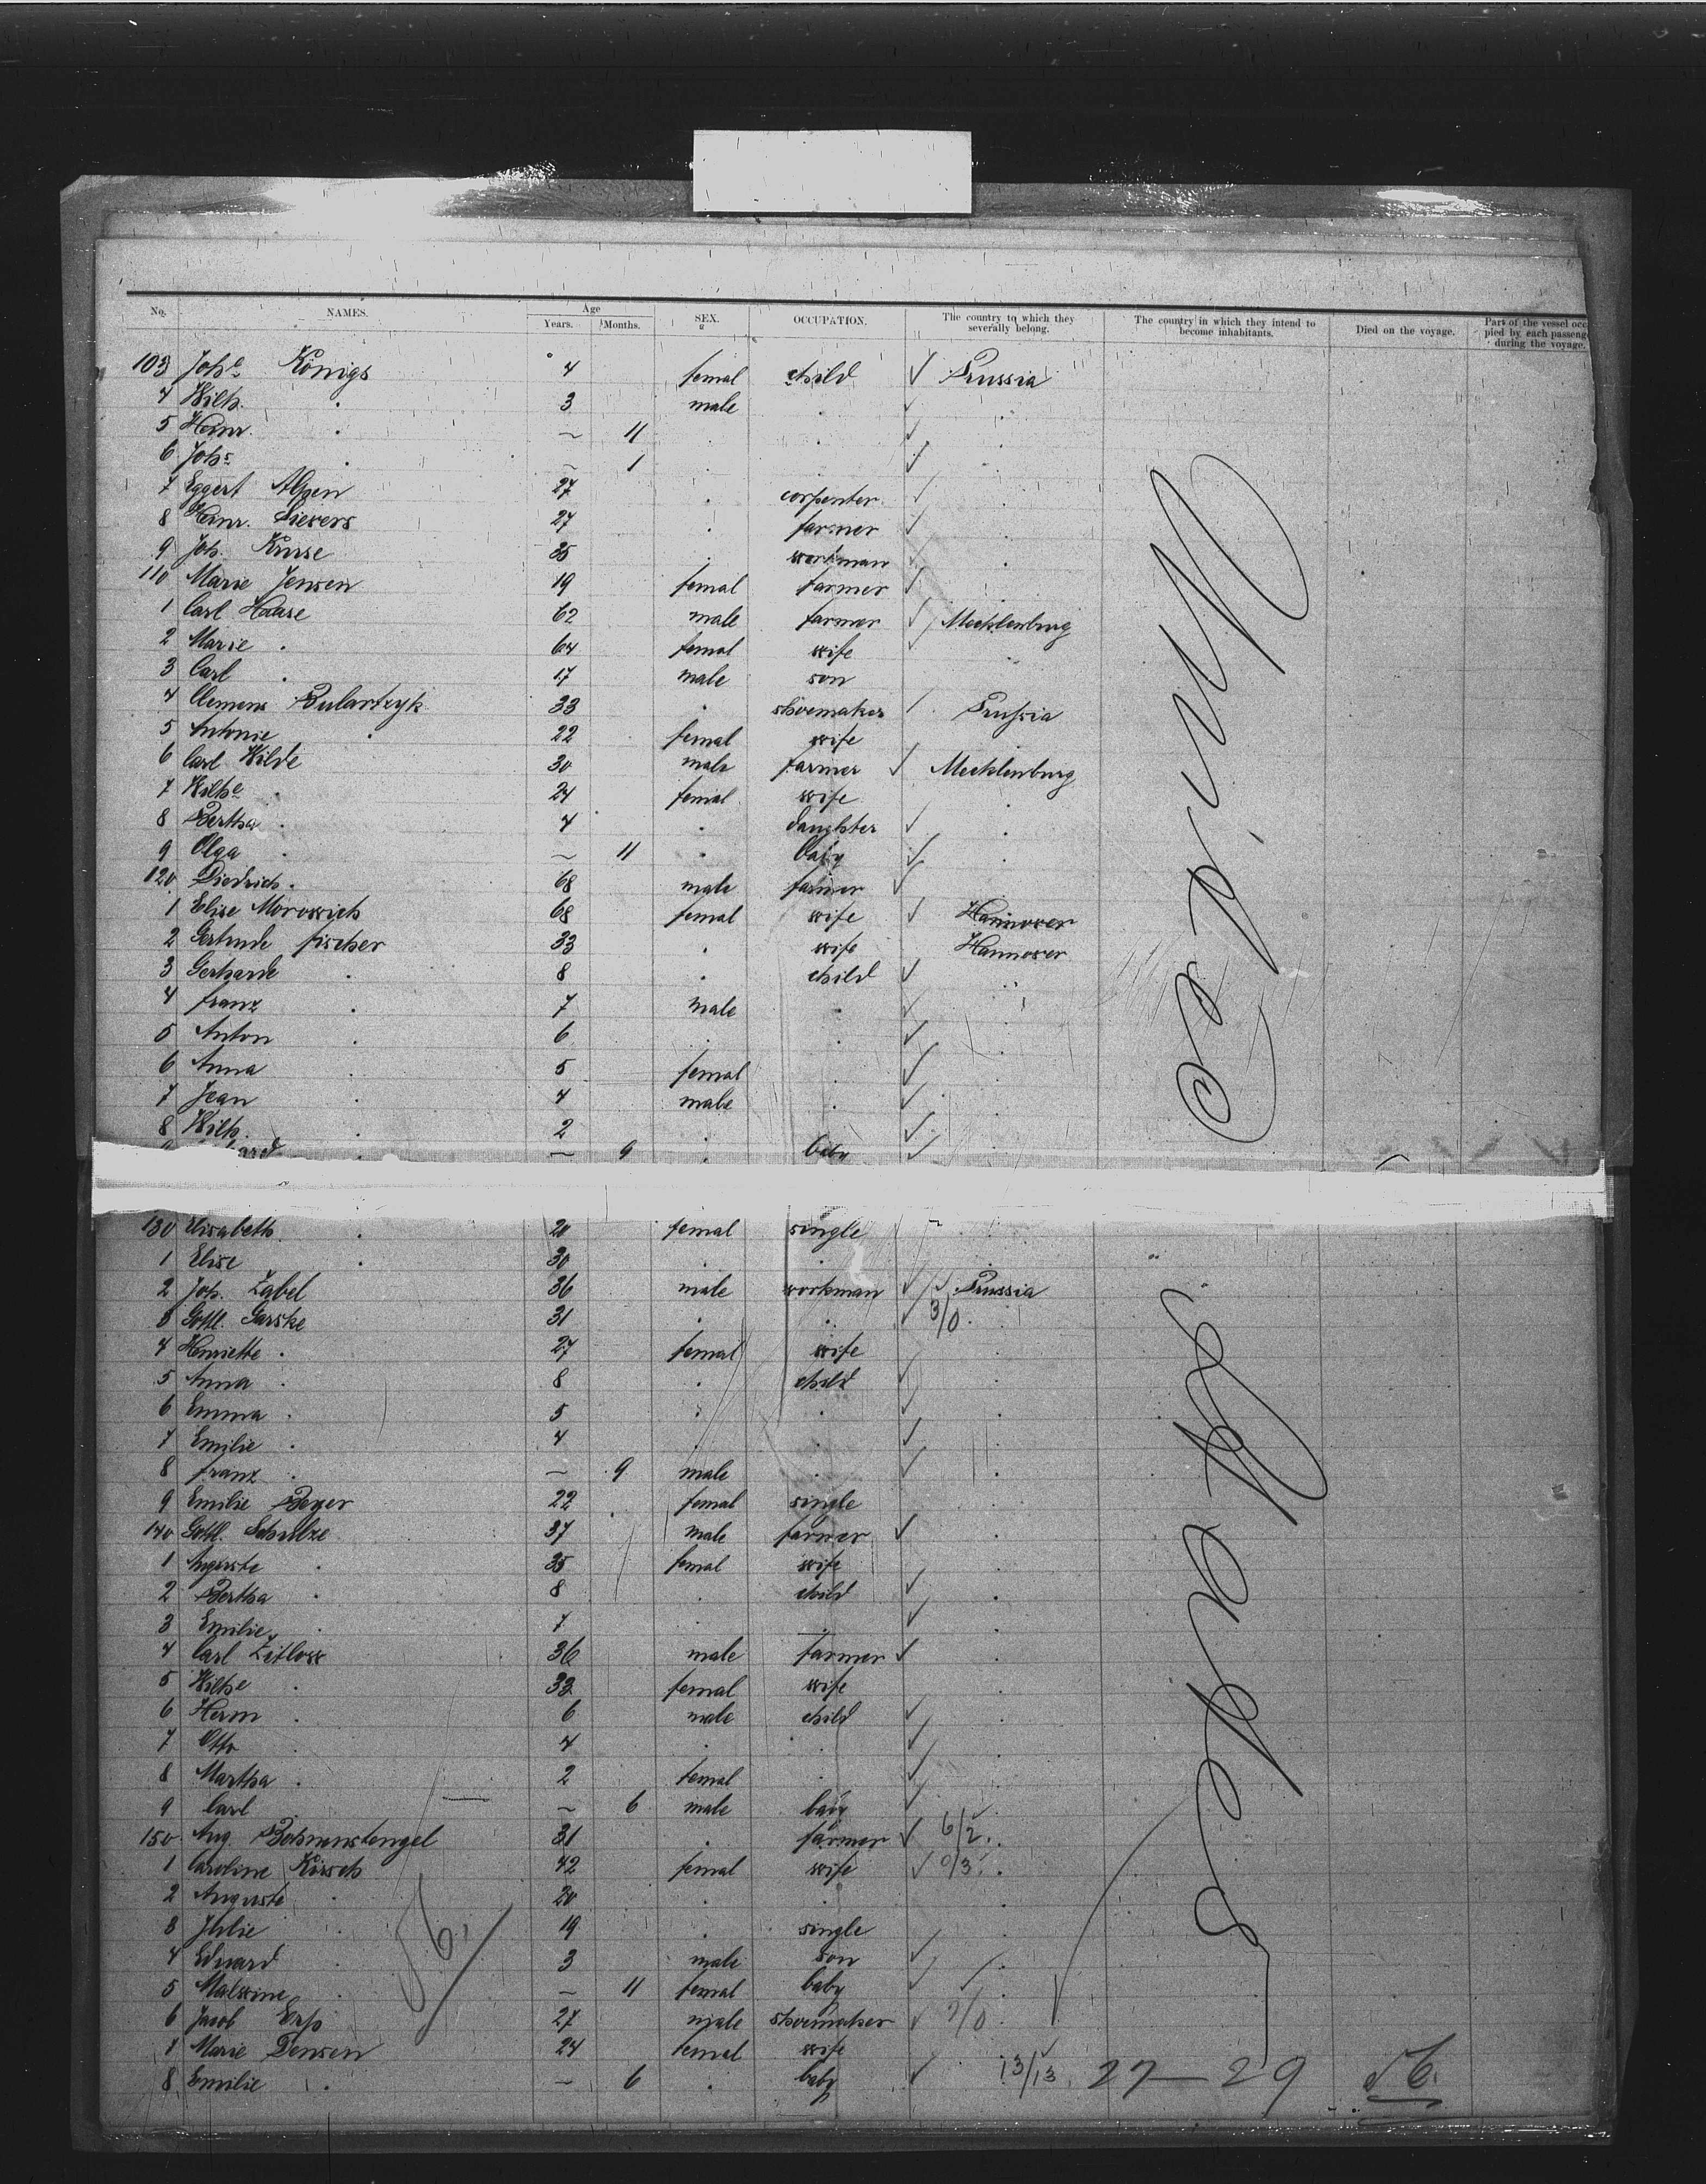 No. NAMES. Age SEX. OCCUPATION. The country to which they severally belong. The country in which they intend to become inhabitants. Died on the voyage. Part of the vessel occupied by each passeng during the voyage.
Years. Months.
103 Johe Königs 4 femal child ✓ Prussia
4 Wilh. . 3 male . ✓ .
5 Heinr. . — 11 . . ✓ .
6 Johs . — 1 . . ✓ .
7 Eggert Alpen 27 . carpenter ✓ .
8 Heinr. Sievers 27 . farmer ✓ .
9 Joh. Kruse 35 . workman ✓ .
110 Marie Jensen 19 femal farmer ✓
1 Carl Haase 62 male farmer ✓ Mecklenburg
2 Marie . 64 femal wife ✓ .
3 Carl . 17 male son
4 Clemens 33 . shoemaker ✓ Prussia
5 Antonie . 22 femal wife
6 Carl Wilde 30 male farmer ✓ Mecklenburg
7 Wilhe . 24 femal wife .
8 Bertha . 4 . daughter ✓ .
9 Olga . — 11 . baby ✓ .
120 Diedrich . 68 male farmer ✓
1 Elise 68 femal wife ✓ Hannover
2 Gertrude Fischer 33 . wife Hannover
3 Gerhard . 8 . child ✓ .
4 Franz . 7 male . ✓ .
5 Anton . 6 . . ✓ .
6 Anna . 5 femal . ✓
7 Jean . 4 male . ✓ .
8 Wilh. . 2 . ✓ .
9 ard . — 9 . baby ✓
130 Elisabeth . 20 femal single ✓
1 Elise . 30 . . .
2 Joh. Zabel 36 male workman ✓ ✓ Prussia
3 Gottl. Garske 31 . . ✓ 3/0 .
4 Henriette . 27 femal wife .
5 Anna . 8 . child ✓ .
6 Emma . 5 . . ✓ .
7 Emilie . 4 . . ✓ .
8 Franz . — 9 male . ✓ .
9 Emilie Beyer 22 femal single
140 Gottl. Schulze 37 male farmer ✓ .
1 Auguste . 35 femal wife
2 Bertha . 8 . child ✓ .
3 Emilie . 7 . . ✓
4 Carl 36 male farmer ✓ .
5 Wilhe . 33 femal wife .
6 Herm . 6 male child ✓ .
7 Otto . 4 . . ✓ .
8 Martha . 2 femal . ✓ .
9 Carl . — 6 male baby ✓ .
150 Aug. Bohnenstengel 31 . farmer ✓ 6/2 .
1 Caroline Kirsch 42 femal wife ✓ 0/3 .
2 Auguste . 20 . . .
3 Julie . 19 . single ✓ .
4 Eduard . 3 male son ✓ .
5 Malwine . — 11 femal baby ✓ .
6 Jacob Erp 27 male shoemaker ✓ .
7 Marie Densen 24 femal wife
8 Emilie . — 6 . baby ✓ 13/13 27 — 29
United
States